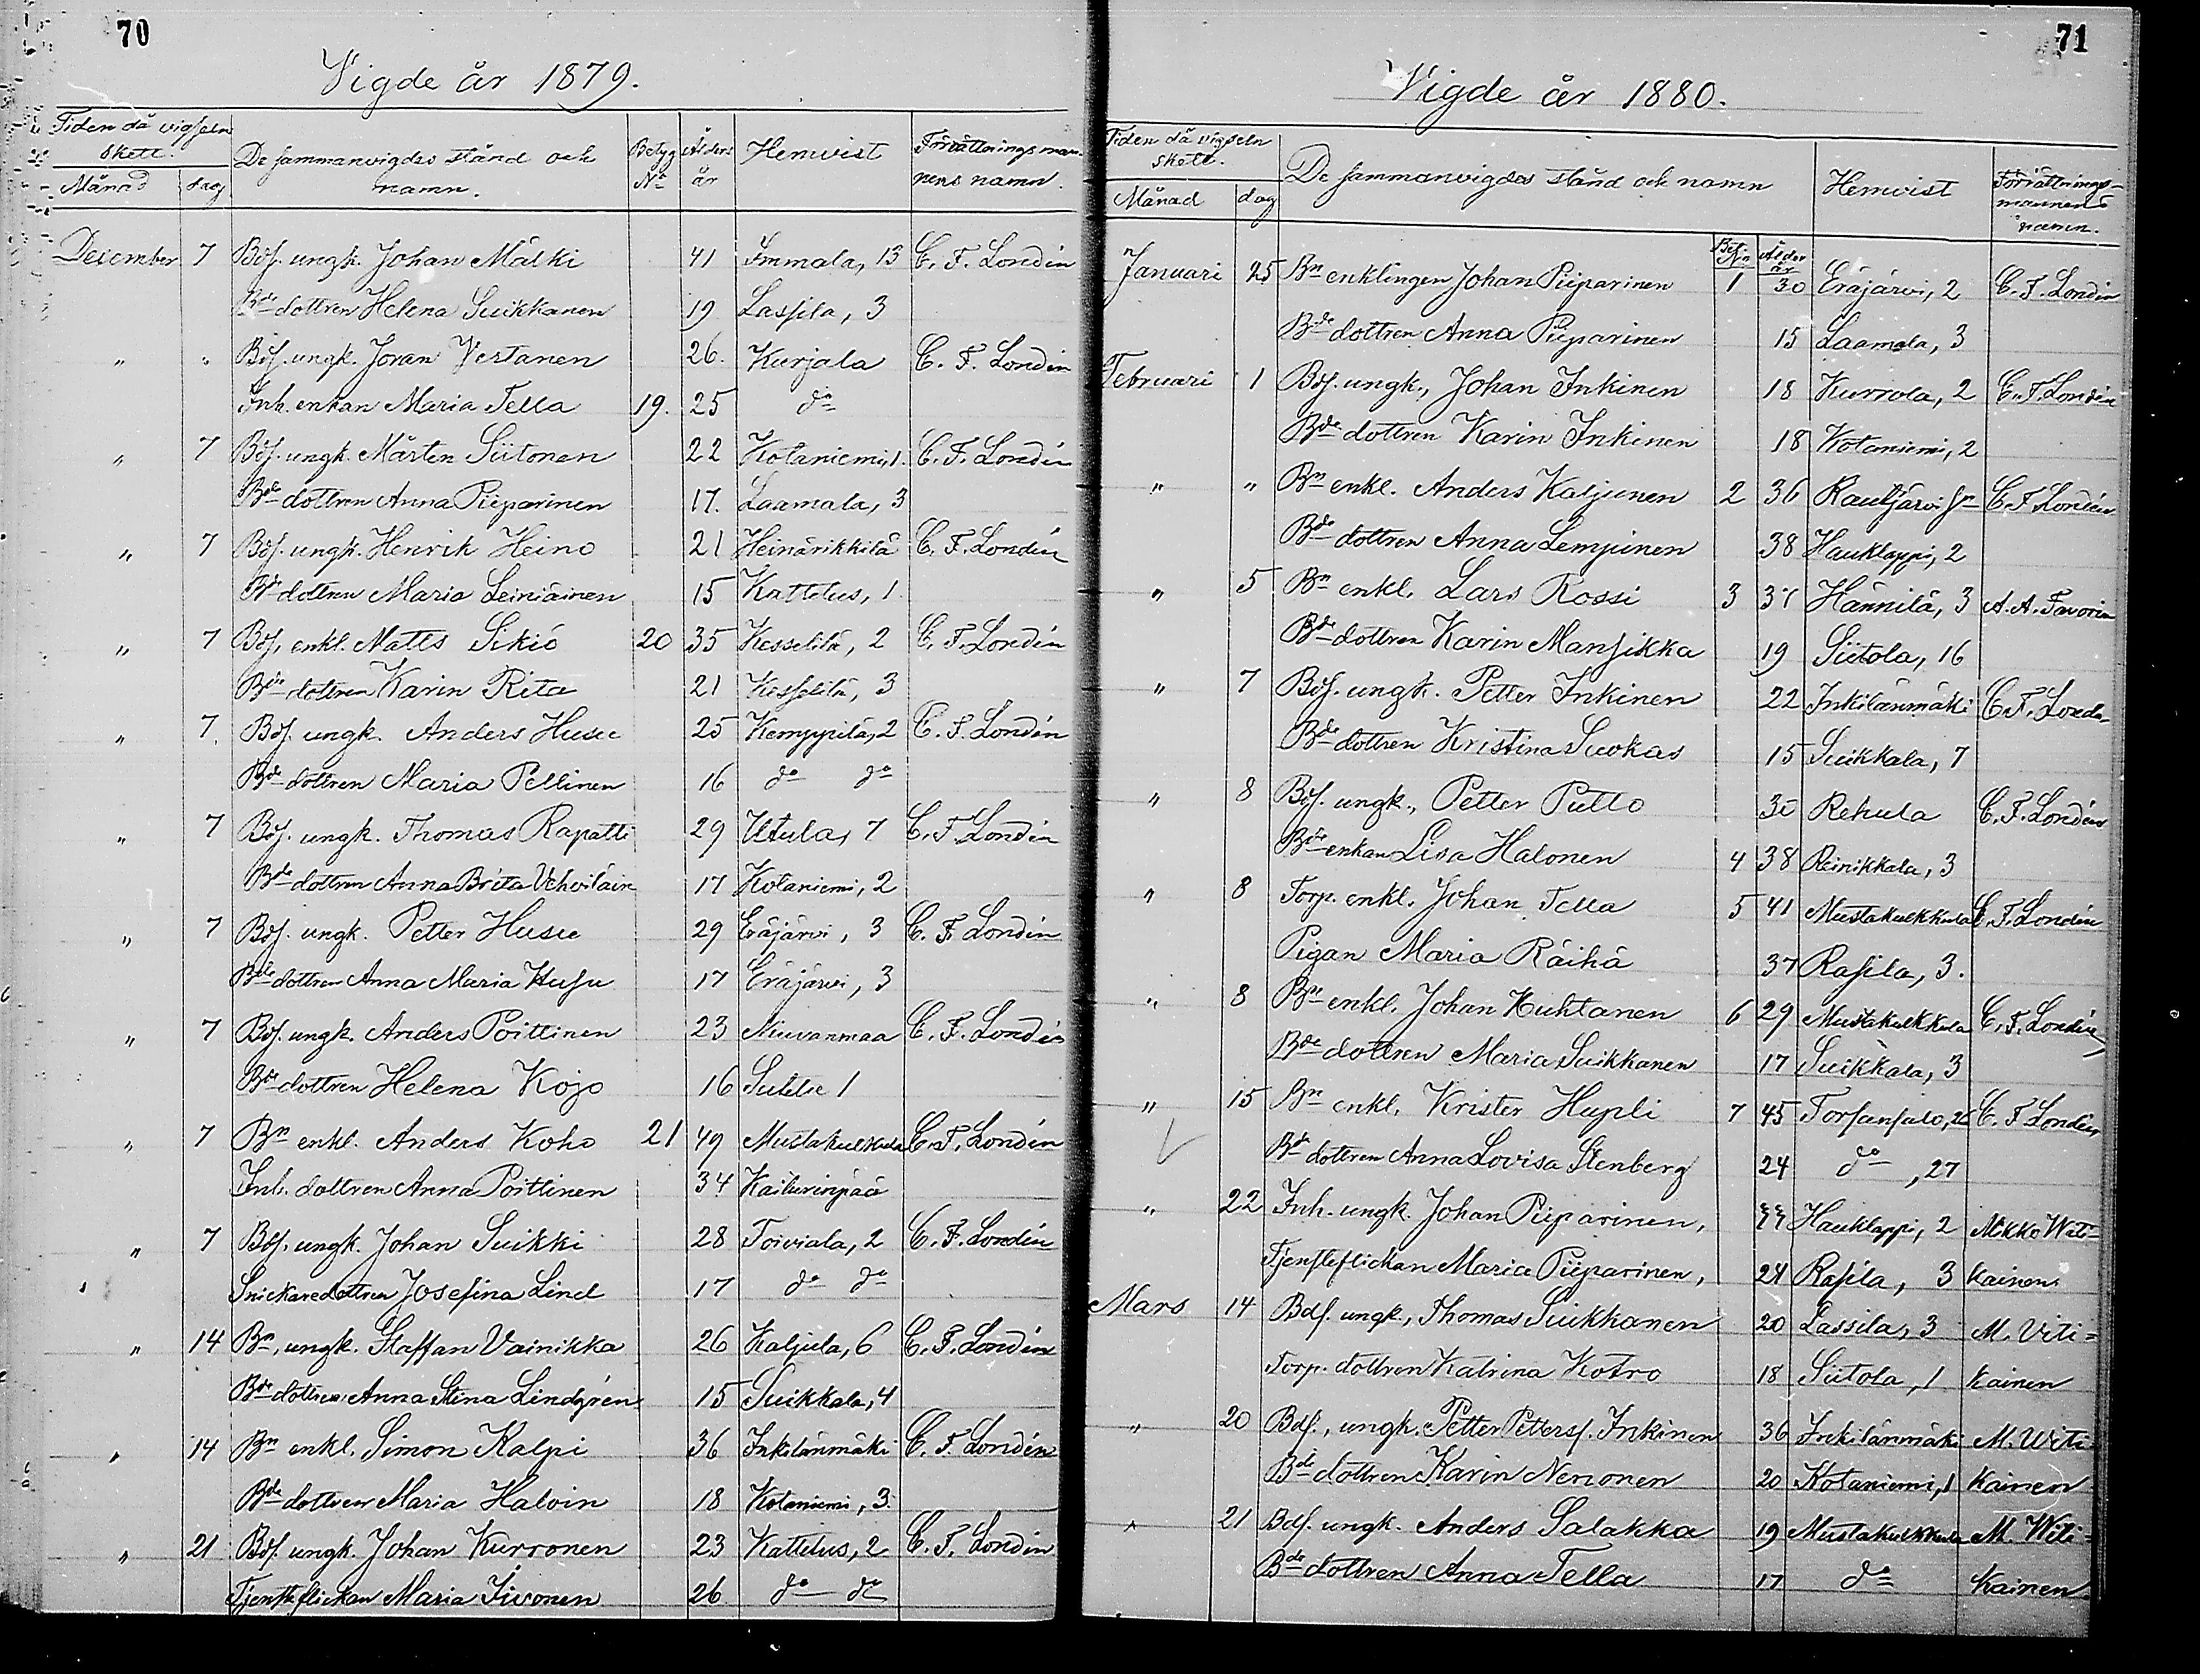 70
Vigde år 1879.
Tiden då vigseln skett.
De sammanvigdes stånd och namn.
Betyg No
Ålders år
Hemvist
Förrättningsmannens namn.
Månad dag
December 7 Bdf. ungk. Johan Mälki 41 Immala, 13 C. F. Londén
Bde dottren Helena Suikkanen 19 Lassila, 3
" " Bdf. ungk. Joran Vertanen 26. Kurjala C. F. Londén
Inh. enkan Maria Tella 19. 25 do
" 7 Bdf. ungk. Mårten Siitonen 22 Kotaniemi, 1. C. F. Londén
Bde dottren Anna Piiparinen 17. Laamala, 3
" 7 Bdf. ungk. Henrik Heino 21 Heinärikkilä C. F. Londén
Bde dottren Maria Leiniäinen 15 Kattelus, 1
" 7 Bdf. enkl. Matts Sikiö 20 35 Kesselilä, 2 C. F. Londén
Bde dottren Karin Rita 21 Kesselilä, 3
" 7. Bdf. ungk. Anders Husu 25 Kemppilä, 2 C. F. Londén
Bde dottren Maria Pellinen 16 do do
" 7 Bdf. ungk. Thomas Rapatti 29 Utula, 7 C. F. Londén
Bde dottren Anna Brita Vehviläin 17 Kotaniemi, 2
" 7 Bdf. ungk. Petter Husu 29 Eräjärvi, 3 C. F. Londén
Bde dottren Anna Maria Husu 17 Eräjärvi, 3
" 7 Bdf. ungk. Anders Poittinen 23 Niuvanmaa C. F. Londén
Bde dottren Helena Kojo 16 Suttu 1
" 7 Bn enkl. Anders Koho 21 49 Mustakulkkula C. F. Londén
Inh. dottren Anna Poittinen 34 Kaiturinpää
" 7 Bdf. ungk. Johan Suikki 28 Toiviala, 2 C. F. Londén
Snickaredottren Josefina Lind 17 do do
" 14 Bn, ungk. Staffan Vainikka 26 Kaljula, 6 C. F. Londén
Bde dottren Anna Stina Lindgrén 15 Suikkala, 4
" 14 Bn enkl. Simon Kalpi 36 Inkilänmäki C. F. Londén
Bde dottren Maria Haloin 18 Kotaniemi, 3
" 21 Bdf. ungk. Johan Kurronen 23 Kattelus, 2 C. F. Londén
Tjensteflickan Maria Iivonen 26 do do
71
Vigde år 1880.
Tiden då vigseln skett.
De sammanvigdes stånd och namn
Hemvist
Förrättningsmannens namn.
Månad dag
Bet. No Ålder år
Januari 25 Bn enklingen Johan Piiparinen 1 30 Eräjärvi, 2 C. F. Londén
Bde dottren Anna Piiparinen 15 Laamala, 3
Februari 1 Bdf. ungk., Johan Inkinen 18 Kurrola, 2 C. F. Londén
Bde dottren Karin Inkinen 18 Kotaniemi, 2
" " Bn enkl. Anders Kaljunen 2 36 Rautjärvi sn C. F. Londén
Bde dottren Anna Lempinen 38 Hauklappi, 2
" 5 Bn enkl. Lars Rossi 3 37 Hännilä, 3 A. A. Favorin
Bde dottren Karin Mansikka 19 Siitola, 16
" 7 Bdf. ungk. Petter Inkinen 22 Inkilänmäki C. F. Londé
Bde dottren Kristina Suokas 15 Suikkala, 7
" 8 Bdf. ungk., Petter Putto 30 Rekula C. F. Londén
Bde enkan Lisa Halonen 4 38 Reinikkala, 3
" 8 Torp. enkl. Johan Tella 5 41 Mustakulkkula C. F. Londén
Pigan Maria Räihä 37 Rasila, 3.
" 8 Bn enkl. Johan Huhtanen 6 29 Mustakulkkula C. F. Londén
Bde dottren Maria Suikkanen 17 Suikkala, 3
" 15 Bn enkl. Krister Hupli 7 45 Torsansalo, 26 C. F. Londén
Bde dottren Anna Lovisa Stenberg 24 do, 27
" 22 Inh. ungk. Johan Piiparinen, Hauklappi, 2 Mikko Witi-
Tjensteflickan Maria Piiparinen, 24 Rasila, 3 kainen
Mars 14 Bdf. ungk., Thomas Suikkanen 20 Lassila, 3 M. Viti=
Torp. dottren Katrina Kotro 18 Siitola, 1 kainen
" 20 Bdf., ungk. Petter Petterss. Inkinen 36 Inkilänmäki M. Witi-
Bde dottren Karin Neronen 20 Kotaniemi, 1 kainen
" 21 Bdf. ungk. Anders Salakka 19 Mustakulkkula M. Witi=
Bde dottren Anna Tella 17 do kainen